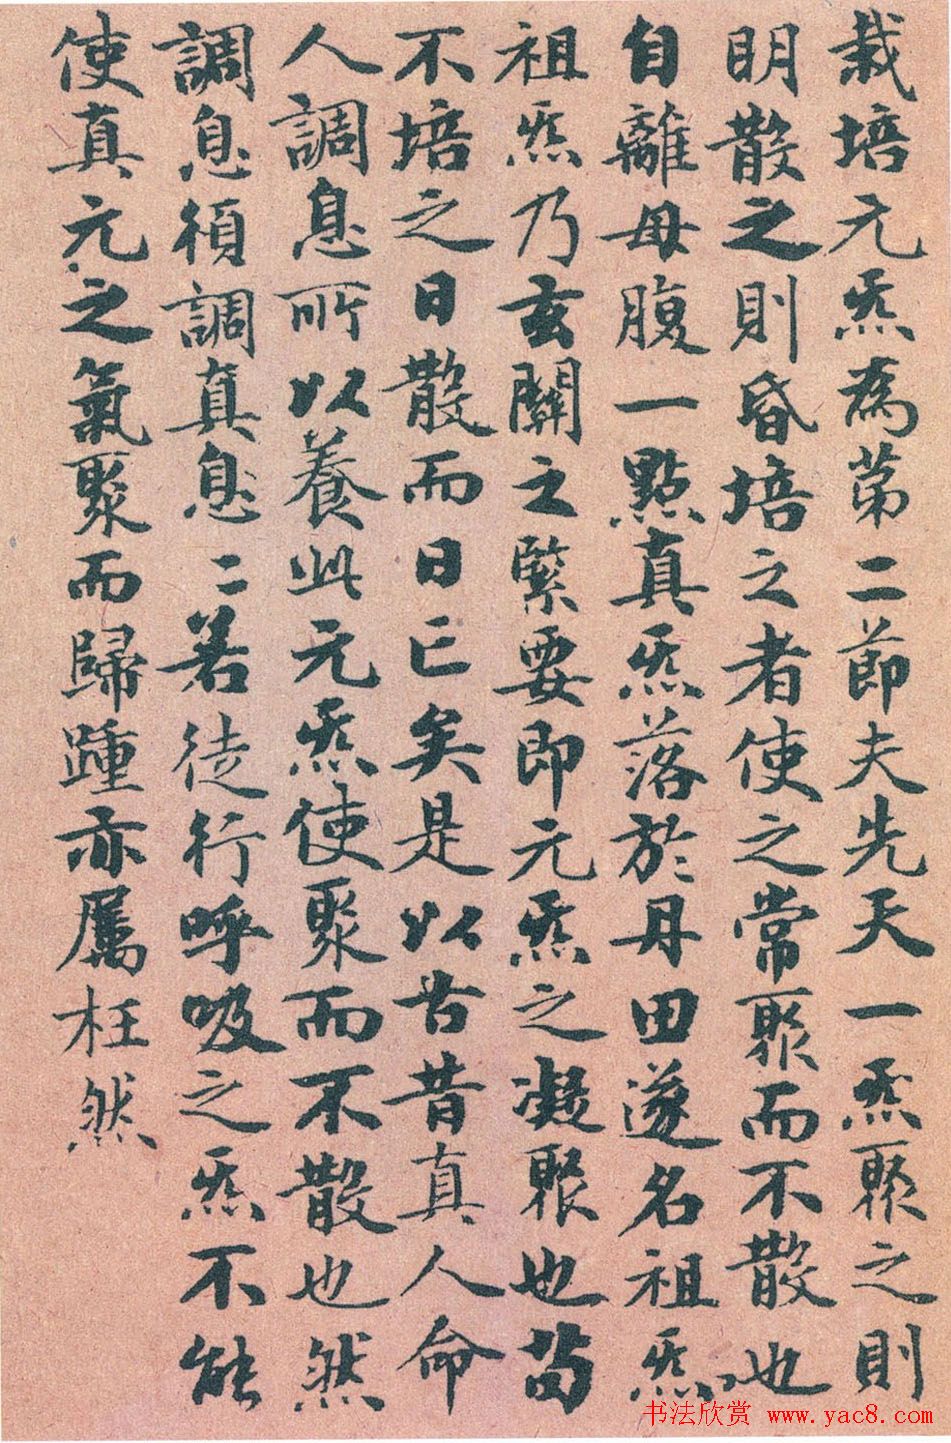 栽培元炁為第二節夫先天一炁聚之則
明散之則昏培之者使之常聚而不散也
自離母腹一點真炁落於丹田遂名祖炁
祖炁乃玄關之緊要即元炁之凝聚也苟
不培之日散而日亡矣是以古昔真人命
人調息所以養此元炁使聚而不散也然
調息須調真息二若徒行呼吸之炁不能
使真元之氣聚而歸踵亦屬枉然
书法欣赏 www.yac8.com